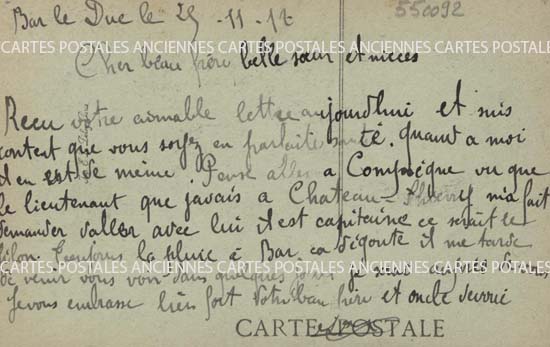 Bar le Duc le 25 -11-17
550092
CARTES POSTALES ANCIENNES CARTES POSTALES ANCIENNES CARTES POSTALES
Cher beau frère belle soeur et nièces
Recu votre aimable lettre aujourdhui et suis
content que vous soyez en parfaite santé. Quand a moi
il en est de meme. Pense aller a Compiègne vu que
le lieutenant que javais a Chateau-Thierry ma fait
CARTES POSTALES ANCIENNES CARTES POSTALES ANCIENNES CARTES POSTALES
demander daller avec lui il est capitaine ce serait le
filon. Toujours la pluie a Bar, ca dégoute il me tarde
CARTES POSTALES ANCIENNES CARTES POSTALES ANCIENNES CARTES POSTALES
de venir vous voir dans quelques jours
Je vous embrasse bien fort Votre beau frère et oncle
CARTE POSTALE